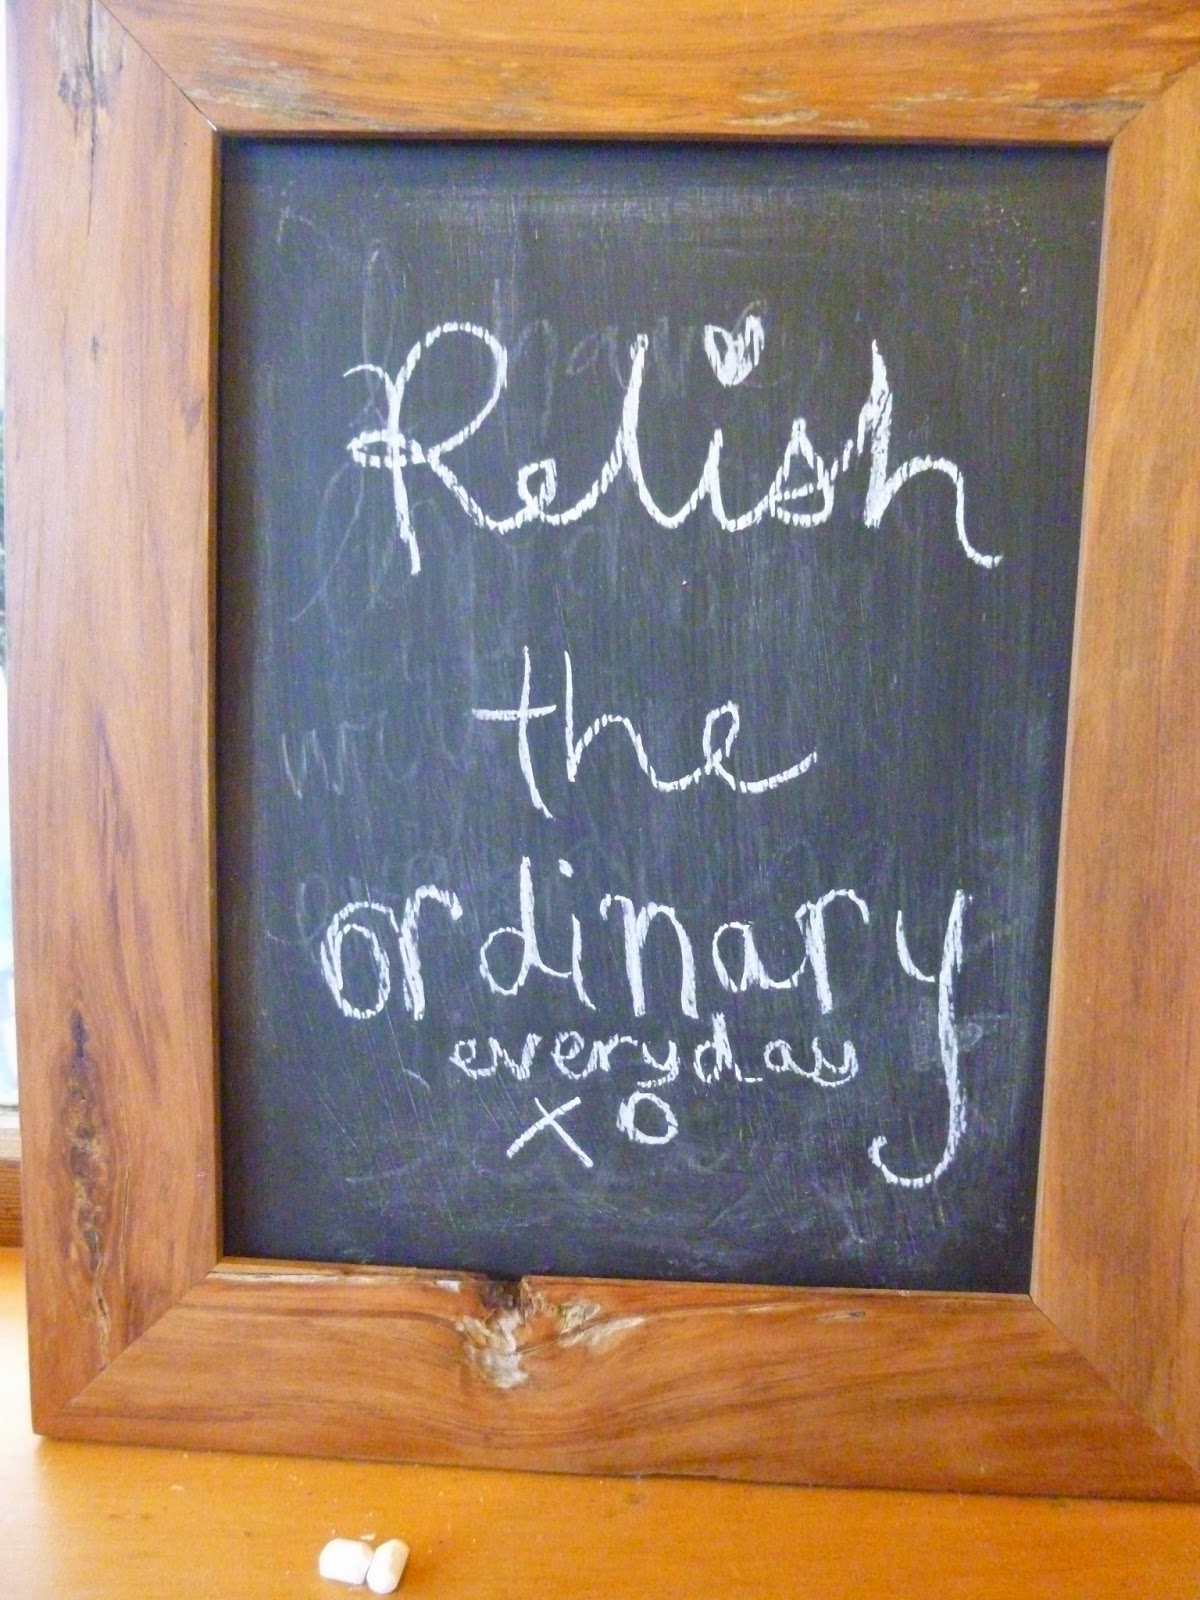 Relish
the
ordinary
everyday
xo